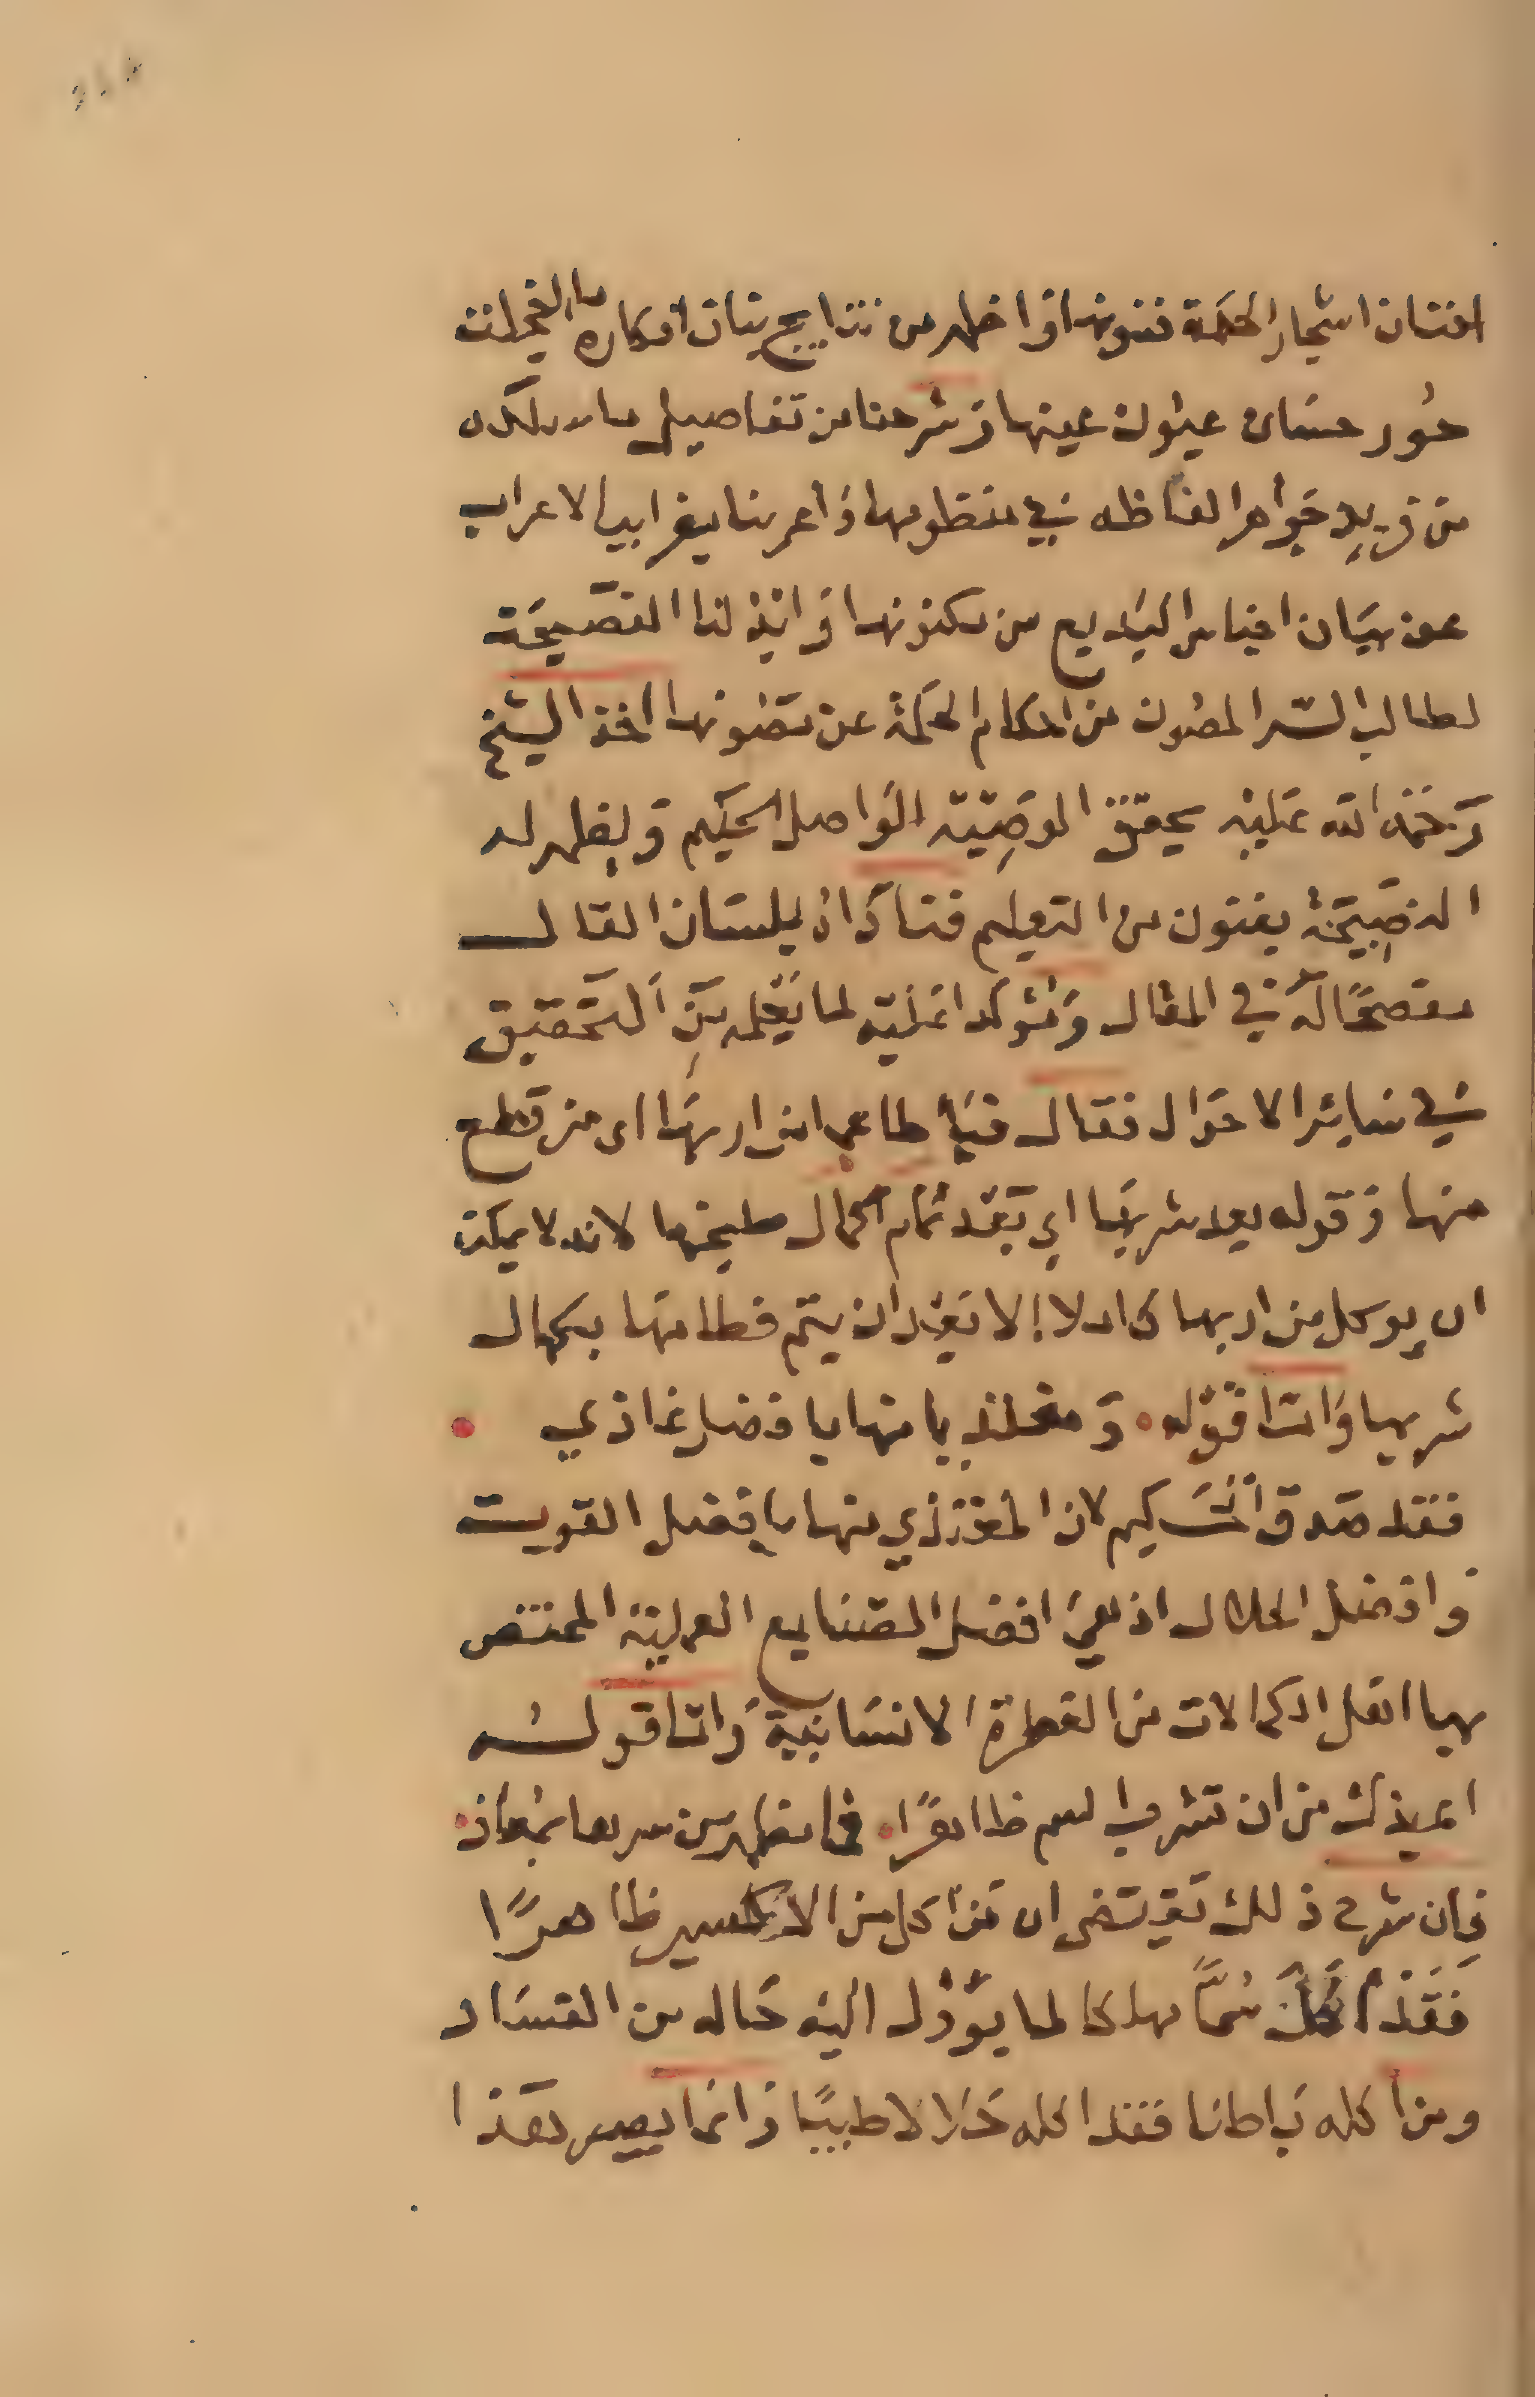 افنان اشجار الحكمة فنونها واظهر من نتايج بنات افكاره ما الخجلت
حُور حسان عيون عينها وشرحنا من تفاصيل ما
من فريد جواهر الفاظه في منظومها واعربنا بغرايب الاعراب
عن بيان اخبار البديع من مكنونها وابذلنا النصيحة
لطالب السر المصون من احكام الحكمة عن مضونها اخذ الشيخ
رَحمَة الله عَليْه يحقق الوصِيّة الواصل الحكيم ويظهر له
النصِيحَة بفنون من التعليم فناداه بلسَان القال
مفصحًا لهُ في المقال ومُؤكدا عَليه لما يَعلمه مِن التحقيق
في سَاير الاحوَال فقال فيَا طاعما من اربهَا اى من قطع
منها وقوله بعد شربهَا اي بَعْد تمَام اكمال طبخها لانه لا يمكن
ان يوكل من اربها كاملا الا بَعْد ان يتم فطامهَا بكمال
شربها وَاما قوْله ومغتذيا منها يا فضل غاذي
فقد صَدق الحَكيم لان المغتذي منها يا فضل القوت
وافضل الحلال اذ هيَ افضل الصّنايع العمليّة المختص
بها اهل الكمالات من الفطرة الانسَانية وَاما قولهُ
اعيذك من ان تشرب السم ظاهرًا فما مظهر من سرها بمُعاذ
فان شرح ذلك يَقتضى ان مَن اكل من الاكسير ظاهرًا
فَقَدْ اكَلَ سُمًّا مهلكا لما يؤول اليْه حَاله من الفسَاد
ومن اكله بَاطنا فقد اكله حَلالا طيبًا وانما يصير هَذا